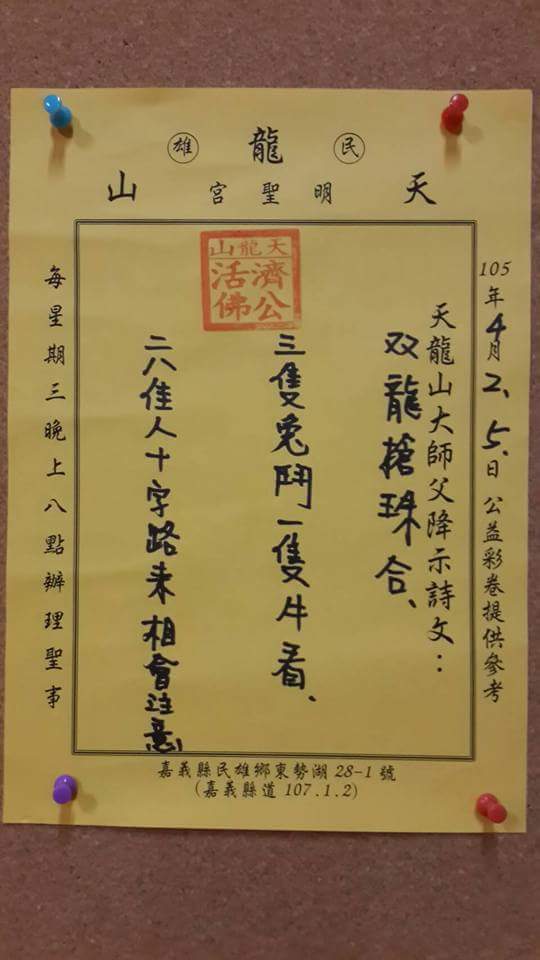 民 龍 雄
天 明聖宮 山
105年4月2、5、日 公益彩卷提供參考
天龍山大師父降示詩文：
双龍搶珠合、
三隻兔鬥一隻牛看、
二八佳人十字路來相會注意
天龍山
濟公
活佛
每星期三晚上八點辦理聖事
嘉義縣民雄鄉東勢湖 28-1 號
(嘉義縣道 107.1.2)